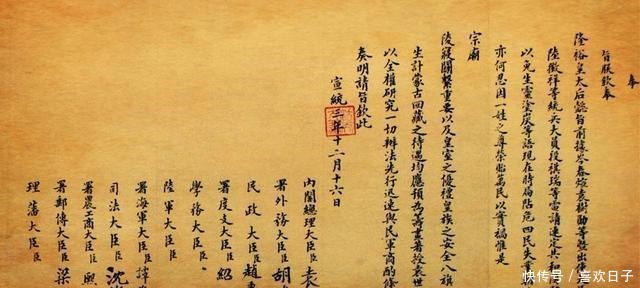 奉
旨朕欽奉
隆裕皇太后懿旨前據岑春煊袁樹勛等暨出使
陸徵祥等統兵大員段祺瑞等電請速定共和
以免生靈塗炭等語現在時局阽危四民失業
亦何忍因一姓之尊榮貽萬民以實禍惟是
宗廟
陵寢關繫重要以及皇室之優禮皇族之安全八旗
生計蒙古回藏之待遇均應預為籌畫著授袁世
以全權研究一切辦法先行迅速與民軍商酌條
奏明請旨欽此
宣統三年十二月十六日
內閣總理大臣臣袁
署外務大臣臣胡
民政大臣臣趙
署度支大臣臣紹
學務大臣臣
陸軍大臣臣
署海軍大臣臣譚
司法大臣臣沈
署農工商大臣臣熙
署郵傳大臣臣梁
理藩大臣臣
快传号 / 喜欢日子